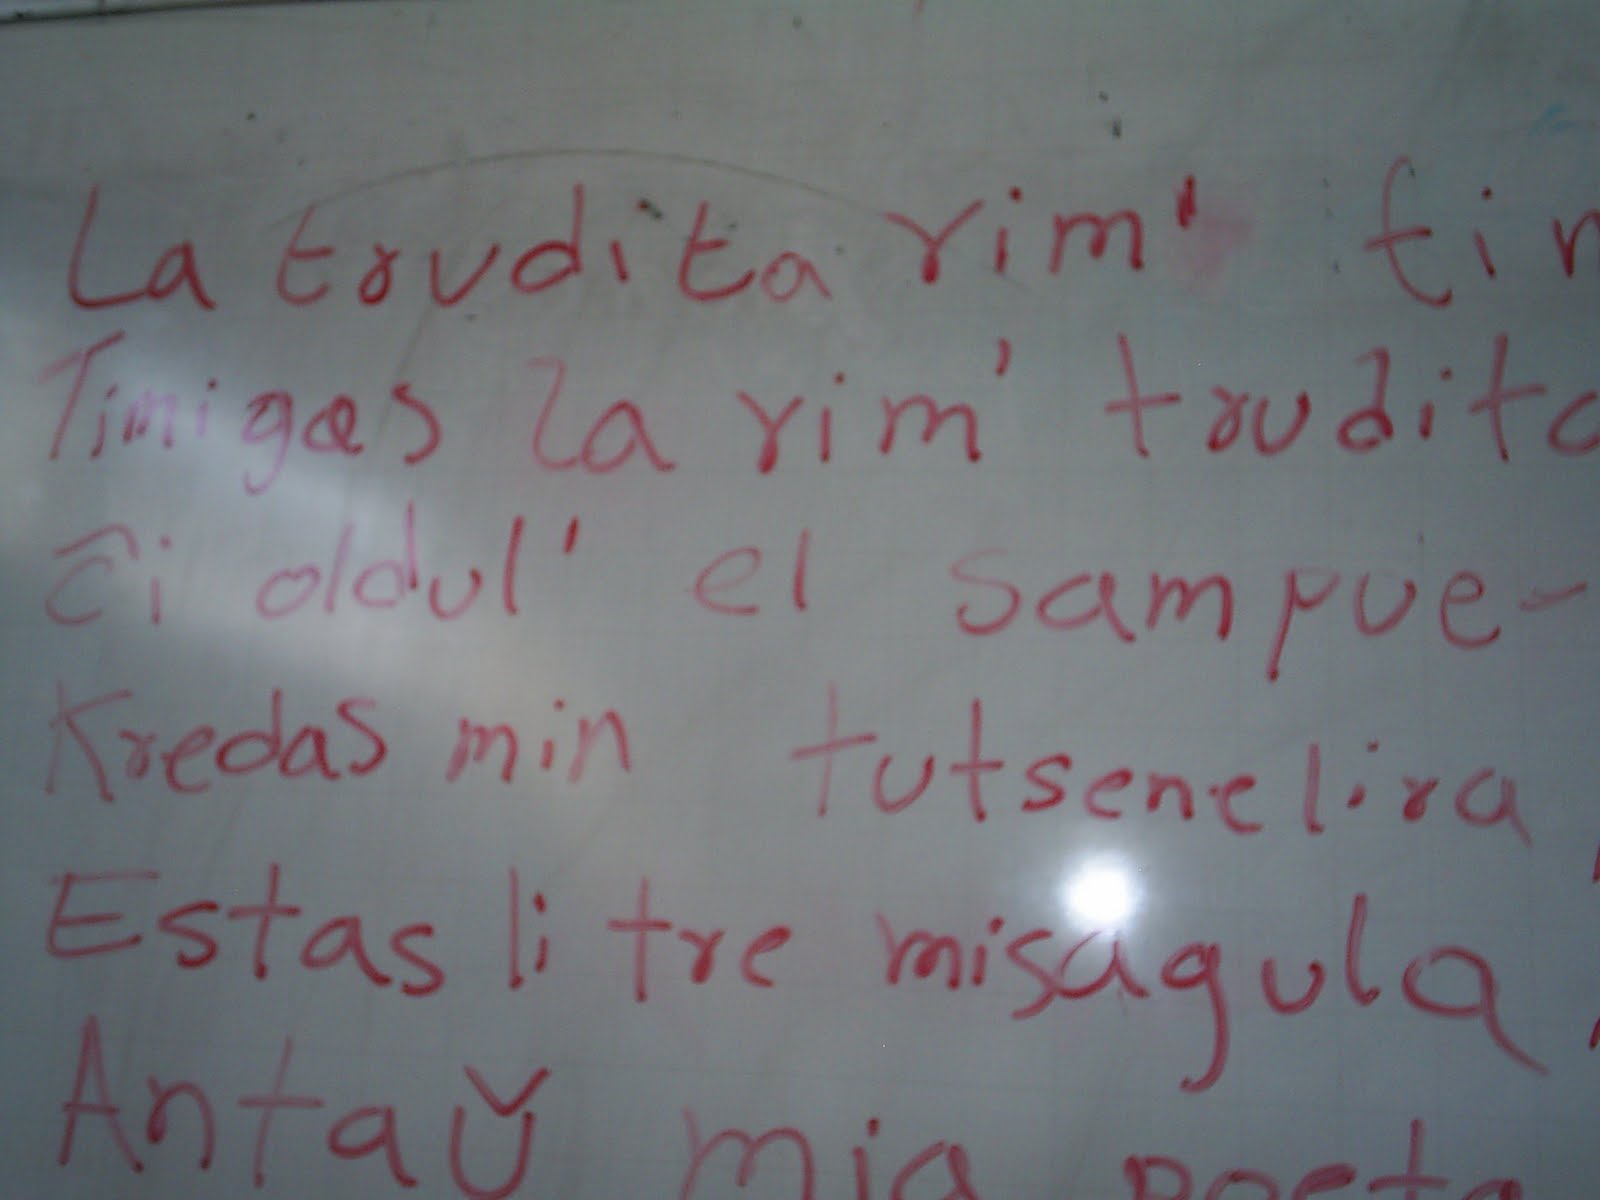 La trudita rim' tim
Timigas la rim' trudita
Ĉi oldul' el sampue-
Kredas min tutsenelira
Estas li tre misagula
Antaŭ mia poeta